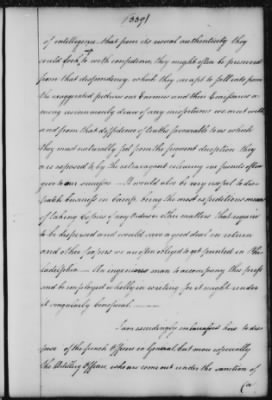 (339)
of intelligence that from its usual authenticity they
could look up to with confidence, they might often be preserved
from that despondency which they are apt to fall into from
the exaggerated pictures our Enemies and their Emissaries a-
mong us commonly draw of any misfortunes we meet with
and from that diffidence of truths favourable to us which
they must naturally feel from the frequent deception they
are exposed to by the extravagant colouring our friends often
give to our successes – It would also be very useful to dis-
patch business in Camp being the most expeditious means
of taking Copies of any Orders or other matters that require
to be dispersed and would save a good deal in returns
and other papers we are often obliged to get printed in Phi-
ladelphia – An ingenious man to accompany this press
and be employed wholly in writing for it might render
it singularly beneficial. ——
I am exceedingly embarrassed how to dis-
pose of the french Officers in General, but more especially
the Artillery Officers, who are come out under the sanction of
(a